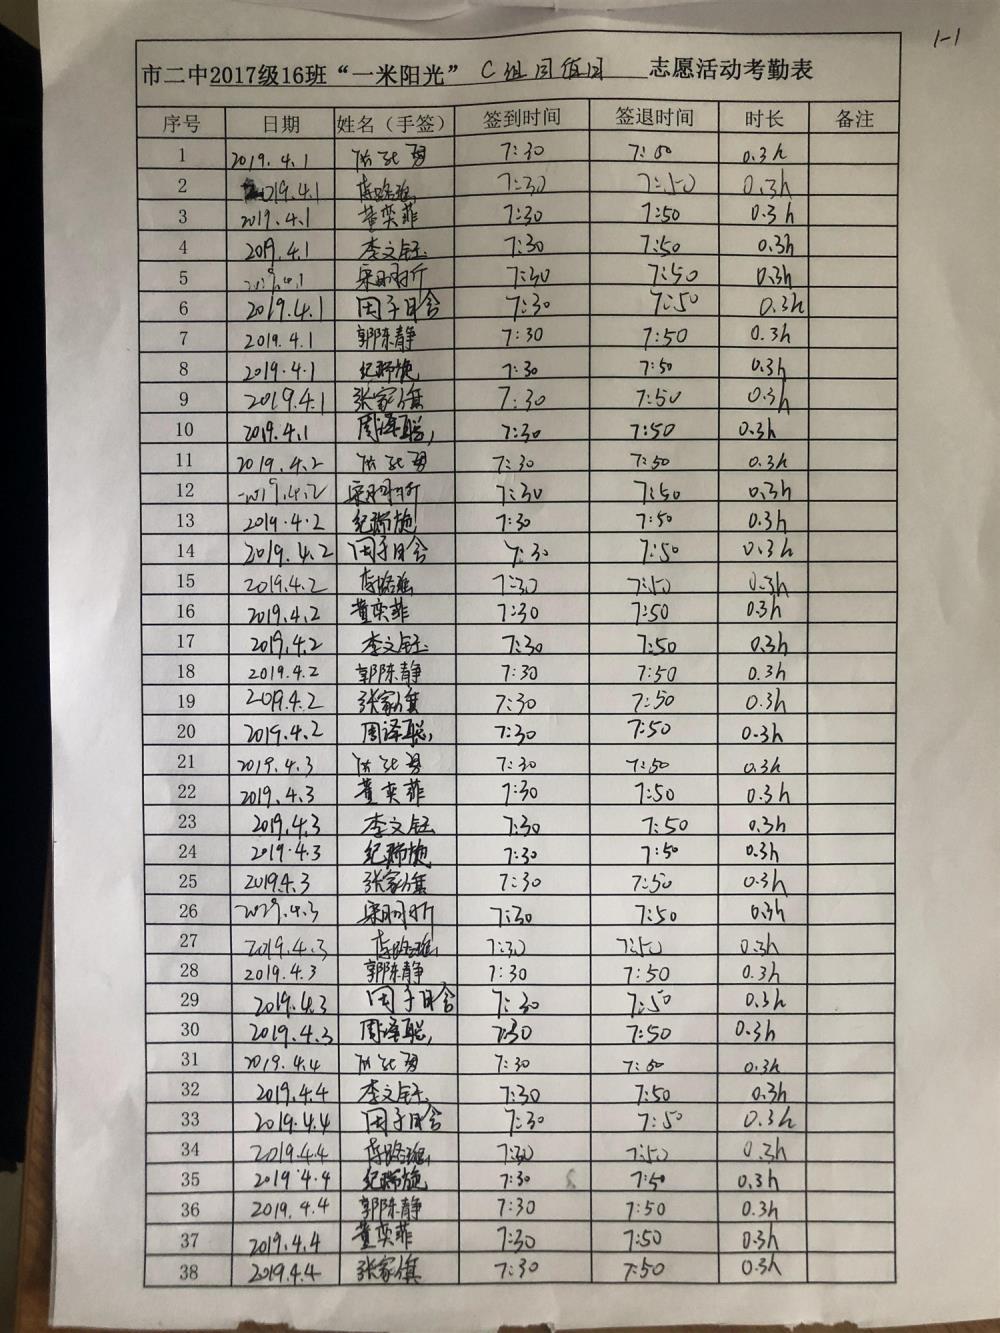 1-1
市二中2017级16班“一米阳光” C组周值日 志愿活动考勤表
序号 日期 姓名（手签） 签到时间 签退时间 时长 备注
1 2019.4.1 7:30 7:50 0.3h
2 2019.4.1 7:30 7:50 0.3h
3 2019.4.1 董奕菲 7:30 7:50 0.3h
4 2019.4.1 李文钰 7:30 7:50 0.3h
5 2019.4.1 7:30 7:50 0.3h
6 2019.4.1 7:30 7:50 0.3h
7 2019.4.1 郭陈静 7:30 7:50 0.3h
8 2019.4.1 纪瑞旎 7:30 7:50 0.3h
9 2019.4.1 张家旗 7:30 7:50 0.3h
10 2019.4.1 周泽聪 7:30 7:50 0.3h
11 2019.4.2 7:30 7:50 0.3h
12 2019.4.2 7:30 7:50 0.3h
13 2019.4.2 纪瑞旎 7:30 7:50 0.3h
14 2019.4.2 7:30 7:50 0.3h
15 2019.4.2 7:30 7:50 0.3h
16 2019.4.2 董奕菲 7:30 7:50 0.3h
17 2019.4.2 李文钰 7:30 7:50 0.3h
18 2019.4.2 郭陈静 7:30 7:50 0.3h
19 2019.4.2 张家旗 7:30 7:50 0.3h
20 2019.4.2 周泽聪 7:30 7:50 0.3h
21 2019.4.3 7:30 7:50 0.3h
22 2019.4.3 董奕菲 7:30 7:50 0.3h
23 2019.4.3 李文钰 7:30 7:50 0.3h
24 2019.4.3 纪瑞旎 7:30 7:50 0.3h
25 2019.4.3 张家旗 7:30 7:50 0.3h
26 2019.4.3 7:30 7:50 0.3h
27 2019.4.3 7:30 7:50 0.3h
28 2019.4.3 郭陈静 7:30 7:50 0.3h
29 2019.4.3 7:30 7:50 0.3h
30 2019.4.3 周泽聪 7:30 7:50 0.3h
31 2019.4.4 7:30 7:50 0.3h
32 2019.4.4 李文钰 7:30 7:50 0.3h
33 2019.4.4 7:30 7:50 0.3h
34 2019.4.4 7:30 7:50 0.3h
35 2019.4.4 纪瑞旎 7:30 7:50 0.3h
36 2019.4.4 郭陈静 7:30 7:50 0.3h
37 2019.4.4 董奕菲 7:30 7:50 0.3h
38 2019.4.4 张家旗 7:30 7:50 0.3h